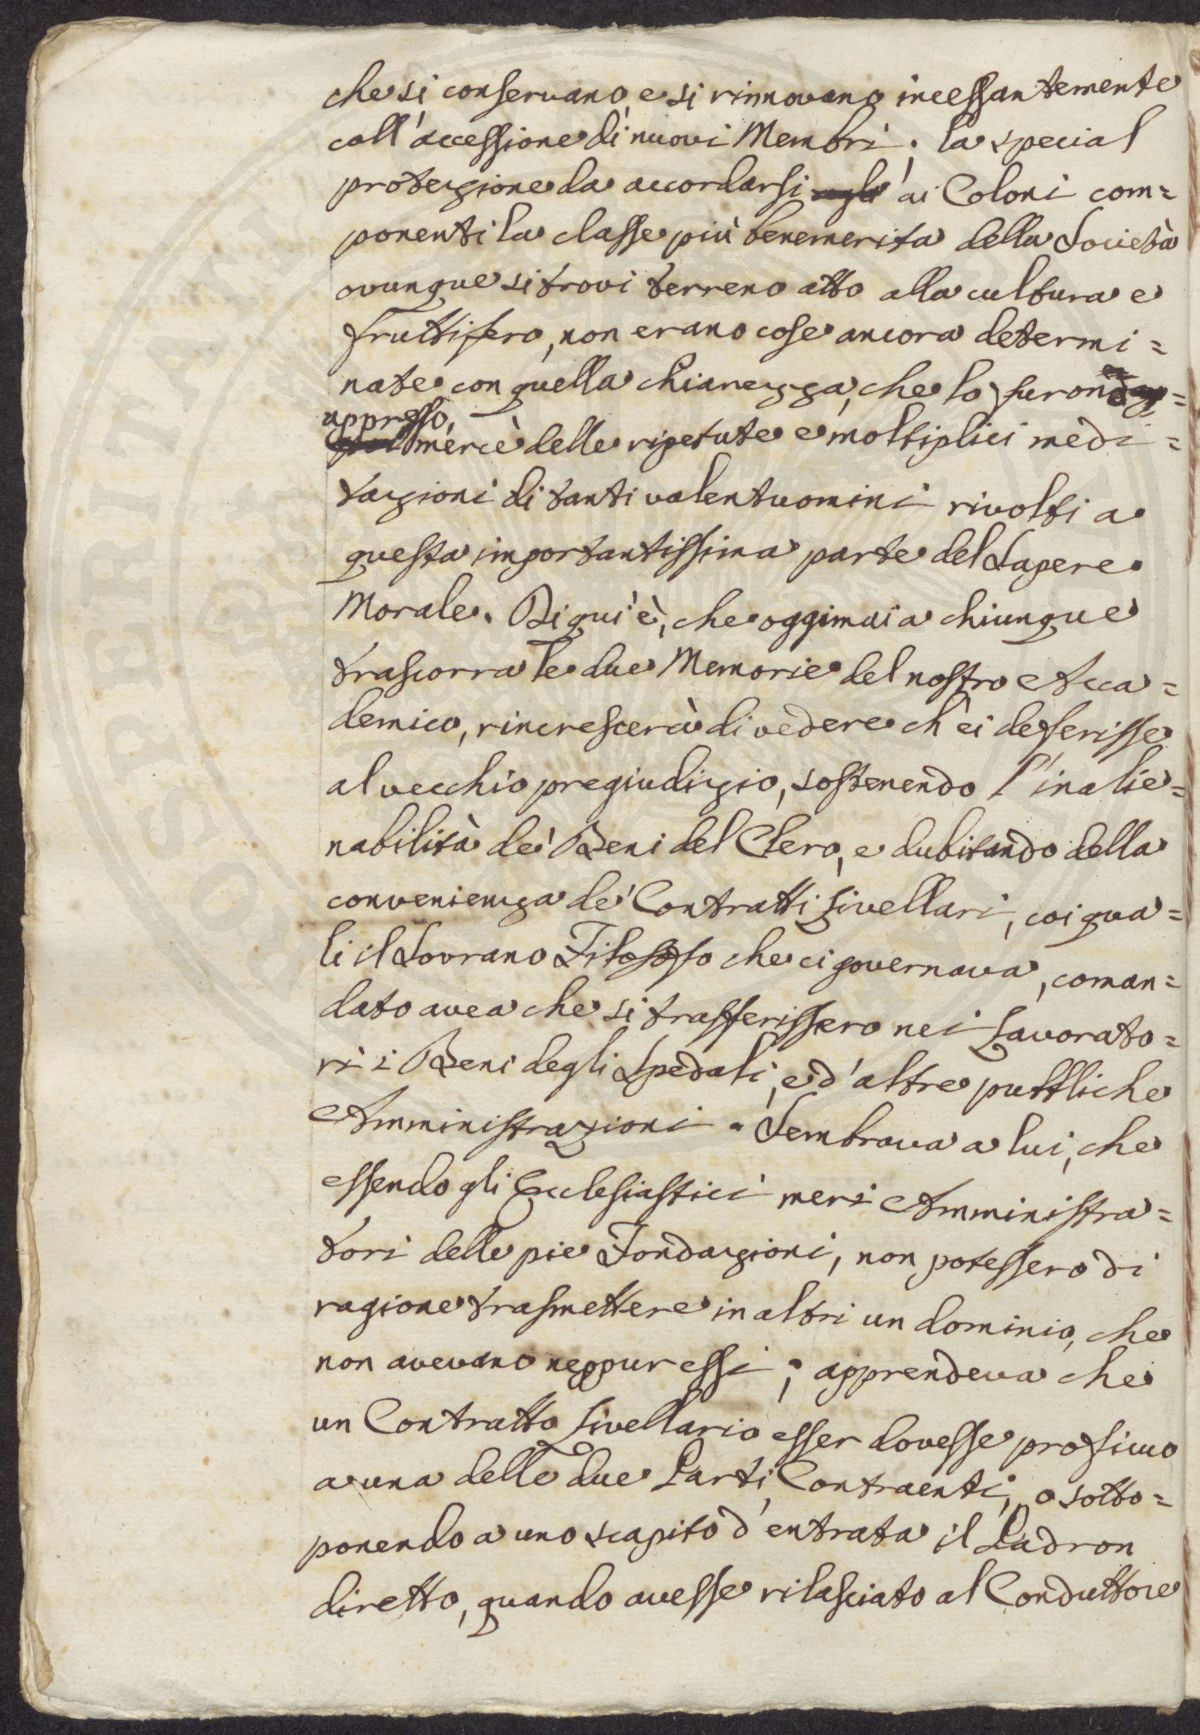 che si conservano, e si rinnovano incessantemente
coll'accessione di nuovi Membri; la special
protezione da accordarsi ai Coloni com=
ponenti la classe più benemerita della Società
ovunque si trovi terreno atto alla cultura e
fruttifero, non erano cose ancora determi=
nate con quella chiarezza, che lo furono
appresso,
mercè delle ripetute e moltiplici medi=
tazioni di tanti valentuomini rivolti a
questa importantissima parte del Sapere
Morale. Di qui è, che oggimai a chiunque
trascorra le due Memorie del nostro Acca=
demico, rincrescerà di vedere ch'ei deferisse
al vecchio pregiudizio, sostenendo l'inalie=
nabilità de' Beni del Clero, e dubitando della
convenienza de' Contratti Livellari, coi qua=
li il Sovrano Filosofo che ci governava, coman=
dato avea che si trasferissero nei Lavorato=
ri i Beni degli Spedali, e d'altre pubbliche
Amministrazioni. Sembrava a lui, che
essendo gli Ecclesiastici meri Amministra=
tori delle pie Fondazioni, non potessero di
ragione trasmettere in altri un dominio, che
non avevano neppur essi; apprendeva che
un Contratto Livellario esser dovesse
a una delle due Parti Contraenti, o sotto=
ponendo a uno scapito d'entrata il Padron
diretto, quando avesse rilasciato al Conduttore